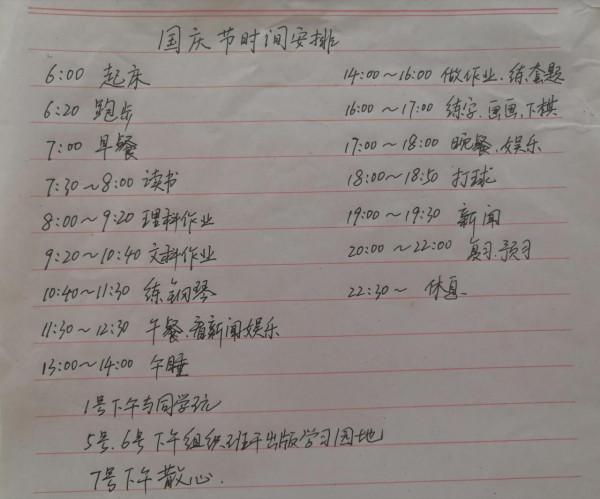 国庆节时间安排
6:00 起床
6:20 跑步
7:00 早餐
7:30～8:00 读书
8:00～9:20 理科作业
9:20～10:40 文科作业
10:40～11:30 练钢琴
11:30～12:30 午餐、看新闻娱乐
13:00～14:00 午睡
14:00～16:00 做作业、练套题
16:00～17:00 练字、画画、下棋
17:00～18:00 晚餐、娱乐
18:00～18:50 打球
19:00～19:30 新闻
20:00～22:00 复习、预习
22:30～ 休息
1号下午与同学玩
5号、6号下午组织班干出版学习园地
7号下午散心.